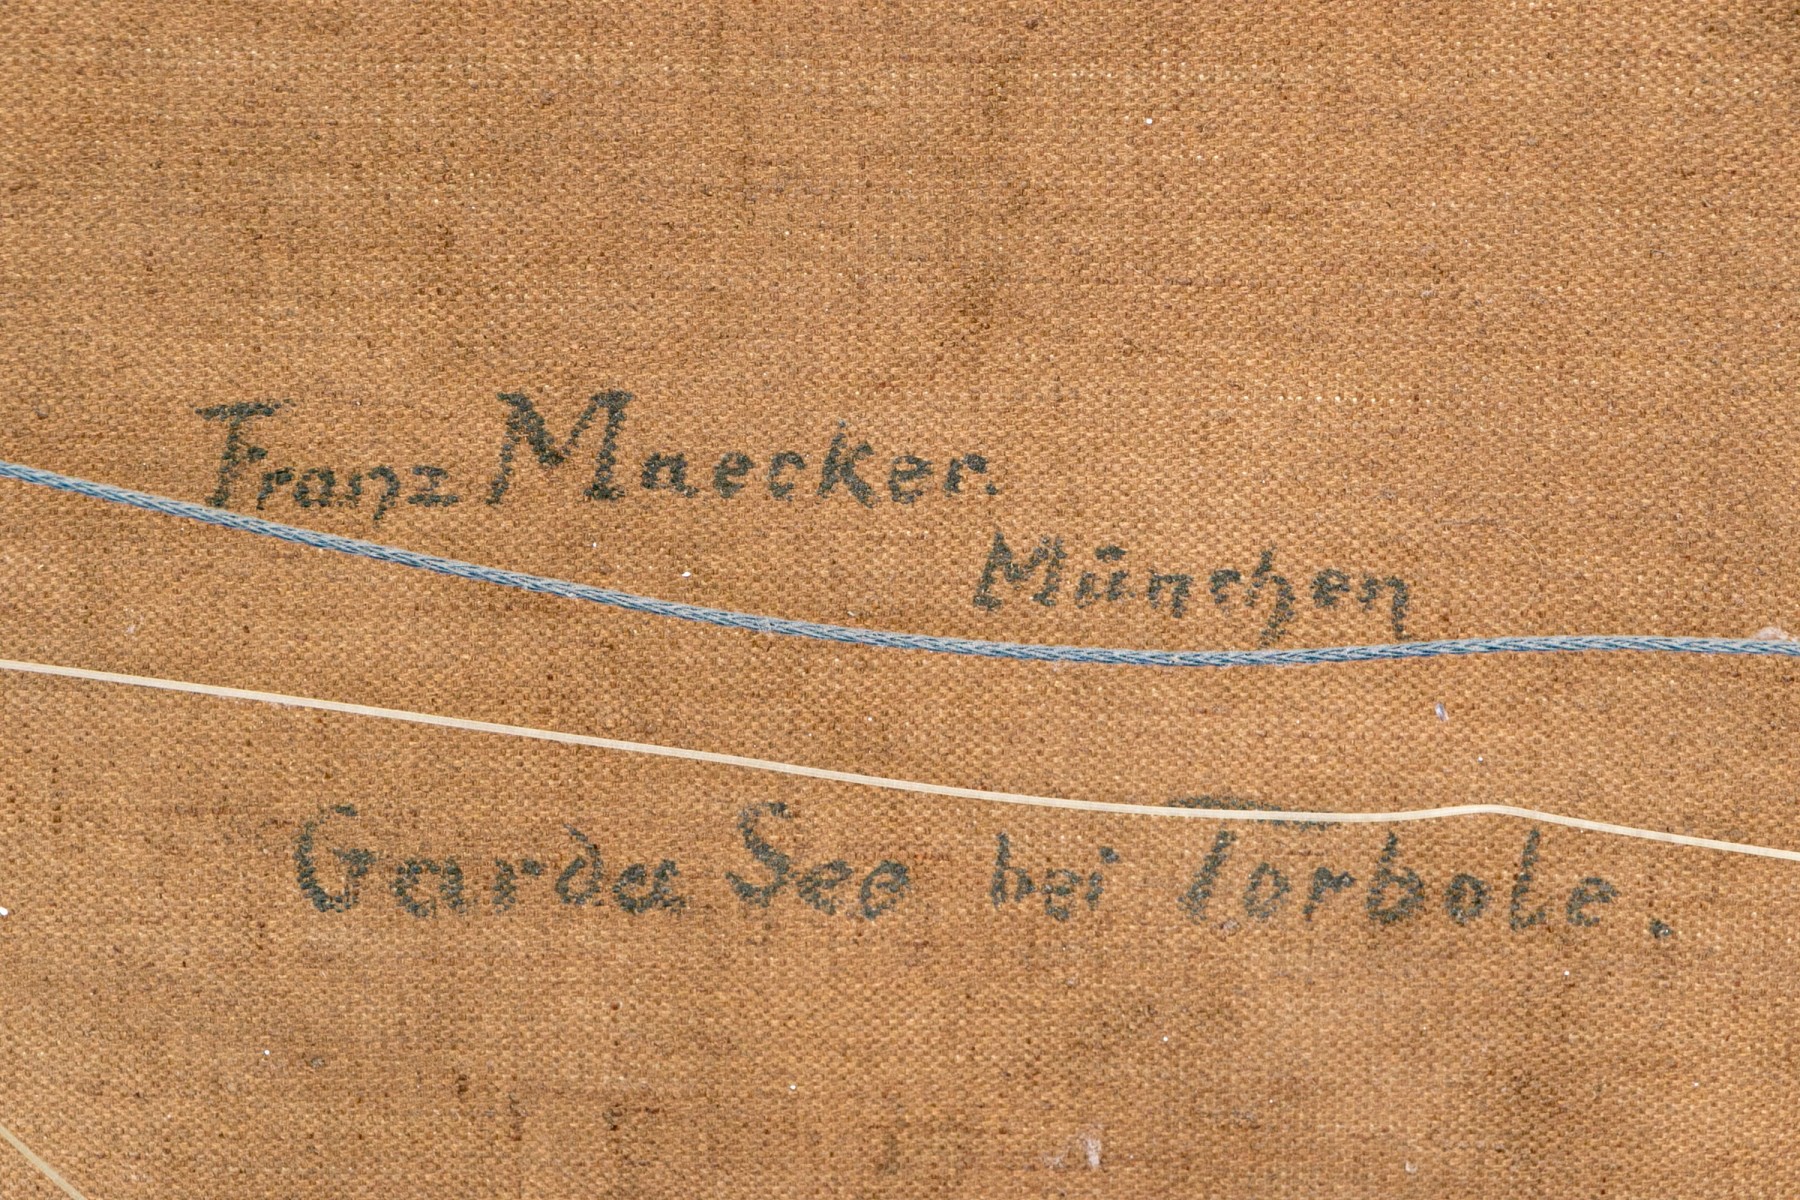 Franz Maecker.
München
Garda See bei Torbole.